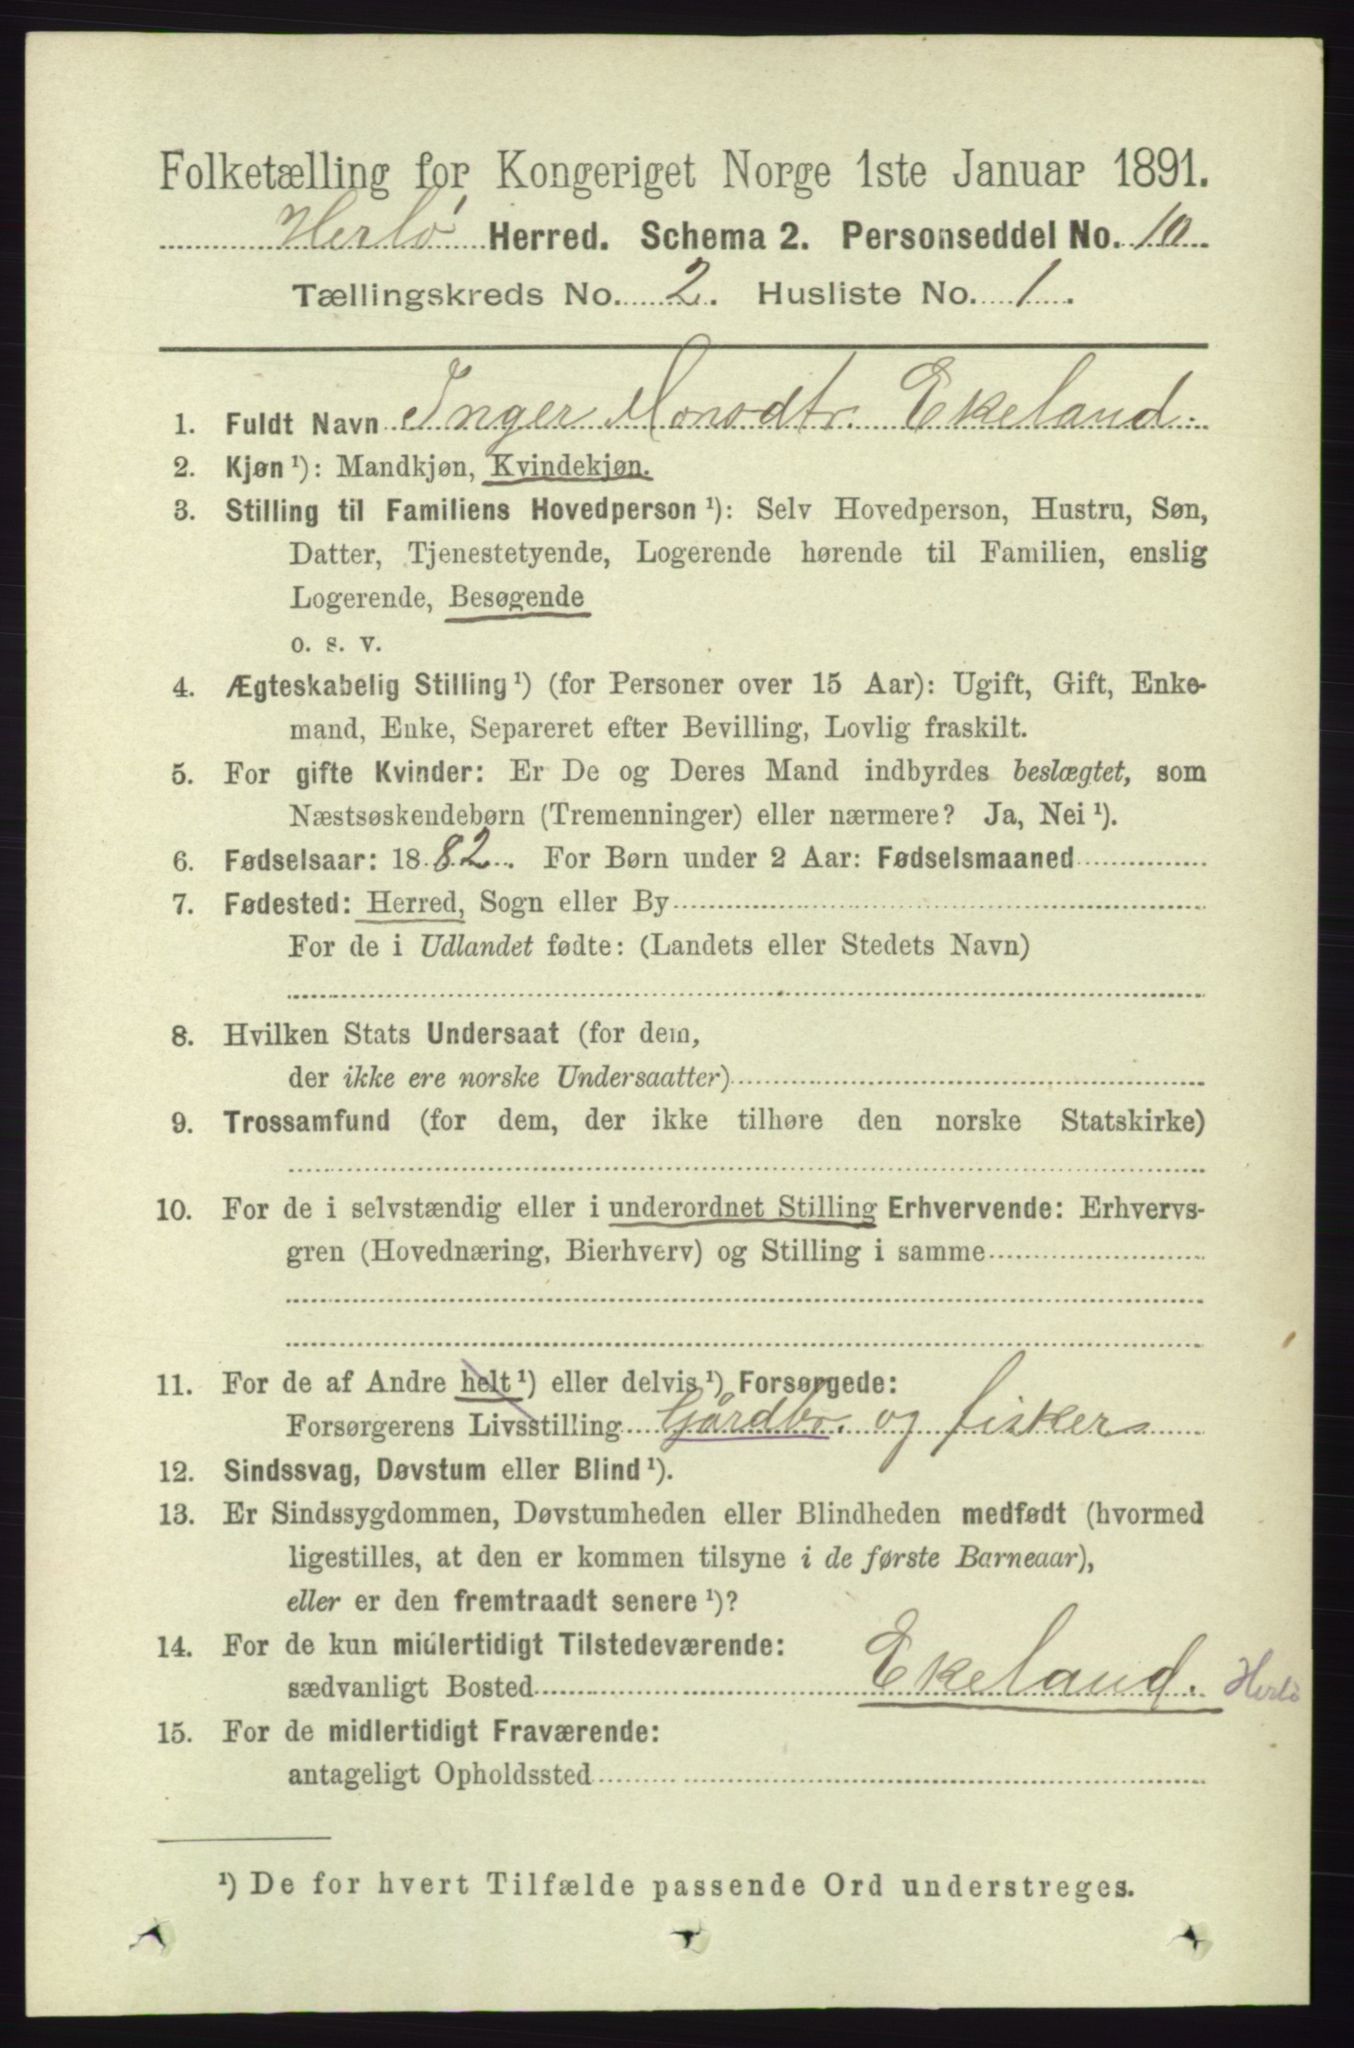 Folketælling for Kongeriget Norge 1ste Januar 1891.
Herlö Herred. Schema 2. Personseddel No. 10
Tællingskreds No. 2. Husliste No. 1.
1. Fuldt Navn Inger Monsdtr. Ekeland.
2. Kjøn ¹): Mandkjøn, Kvindekjøn.
3. Stilling til Familiens Hovedperson ¹): Selv Hovedperson, Hustru, Søn,
Datter, Tjenestetyende, Logerende hørende til Familien, enslig
Logerende, Besøgende
o. s. v.
4. Ægteskabelig Stilling ¹) (for Personer over 15 Aar): Ugift, Gift, Enke-
mand, Enke, Separeret efter Bevilling, Lovlig fraskilt.
5. For gifte Kvinder: Er De og Deres Mand indbyrdes beslægtet, som
Næstsøskendebørn (Tremenninger) eller nærmere? Ja, Nei ¹).
6. Fødselsaar: 1882. For Børn under 2 Aar: Fødselsmaaned
7. Fødested: Herred, Sogn eller By
For de i Udlandet fødte: (Landets eller Stedets Navn)
8. Hvilken Stats Undersaat (for dem,
der ikke ere norske Undersaatter)
9. Trossamfund (for dem, der ikke tilhøre den norske Statskirke)
10. For de i selvstændig eller i underordnet Stilling Erhvervende: Erhvervs-
gren (Hovednæring, Bierhverv) og Stilling i samme
11. For de af Andre helt ¹) eller delvis ¹) Forsørgede:
Forsørgerens Livsstilling Gårdbr. og fisker
12. Sindssvag, Døvstum eller Blind ¹).
13. Er Sindssygdommen, Døvstumheden eller Blindheden medfødt (hvormed
ligestilles, at den er kommen tilsyne i de første Barneaar),
eller er den fremtraadt senere ¹)?
14. For de kun midlertidigt Tilstedeværende:
sædvanligt Bosted Ekeland. Herlö
15. For de midlertidigt Fraværende:
antageligt Opholdssted
¹) De for hvert Tilfælde passende Ord understreges.